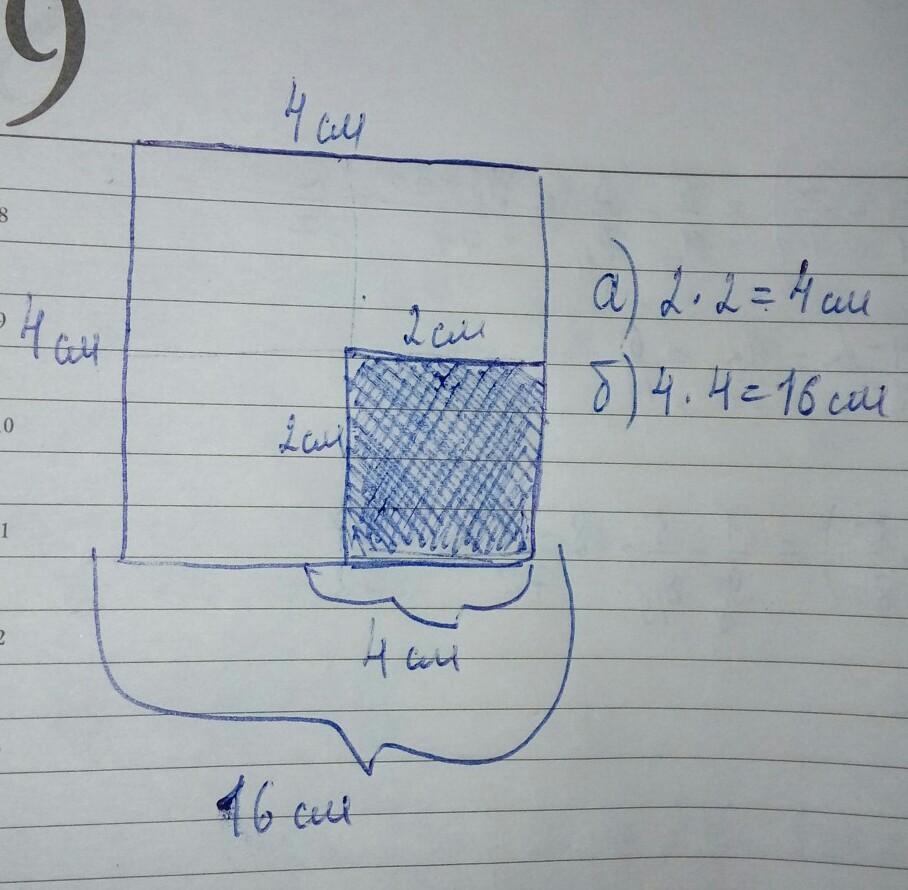 9
4 см
8
а) 2 · 2 = 4 см
9
2 см
4 см
б) 4 · 4 = 16 см
10
2 см
11
12
4 см
16 см